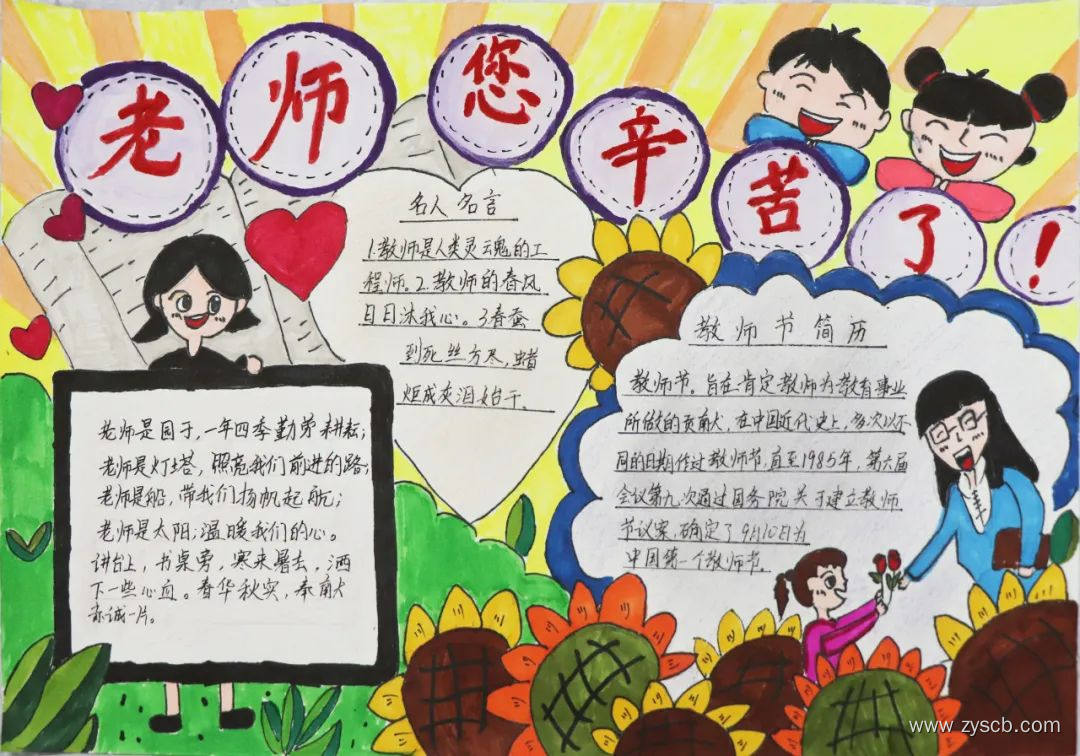 老师您辛苦了!
名人名言
1.教师是人类灵魂的工
程师。2.教师的春风
日日沐我心。3春蚕
到死丝方尽,蜡
炬成灰泪始干。
教师节简历
教师节。旨在肯定教师为教育事业
所做的贡献,在中国近代史上,多次以不
同的日期作过教师节,直至1985年,第六届
会议第九次通过国务院关于建立教师
节议案,确定了9月10日为
中国第一个教师节。
老师是园丁,一年四季勤劳耕耘;
老师是灯塔,照亮我们前进的路;
老师是船,带我们扬帆起航;
老师是太阳;温暖我们的心。
讲台上,书桌旁,寒来暑去,洒
下一些心血。春华秋实,奉献
赤诚一片。
www.zyscb.com